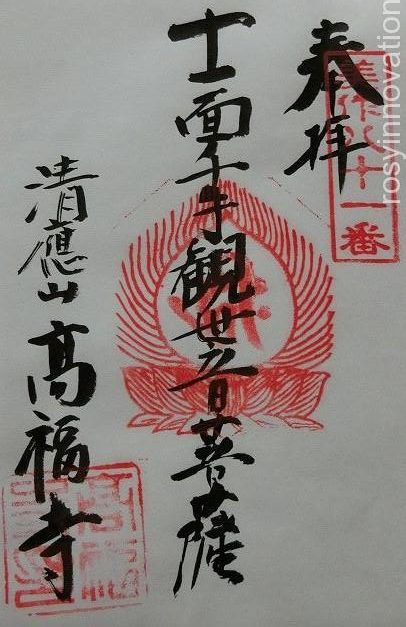 奉拝
美作八十一番
十一面千手観世音菩薩
清應山 高福寺
rosyinnovation